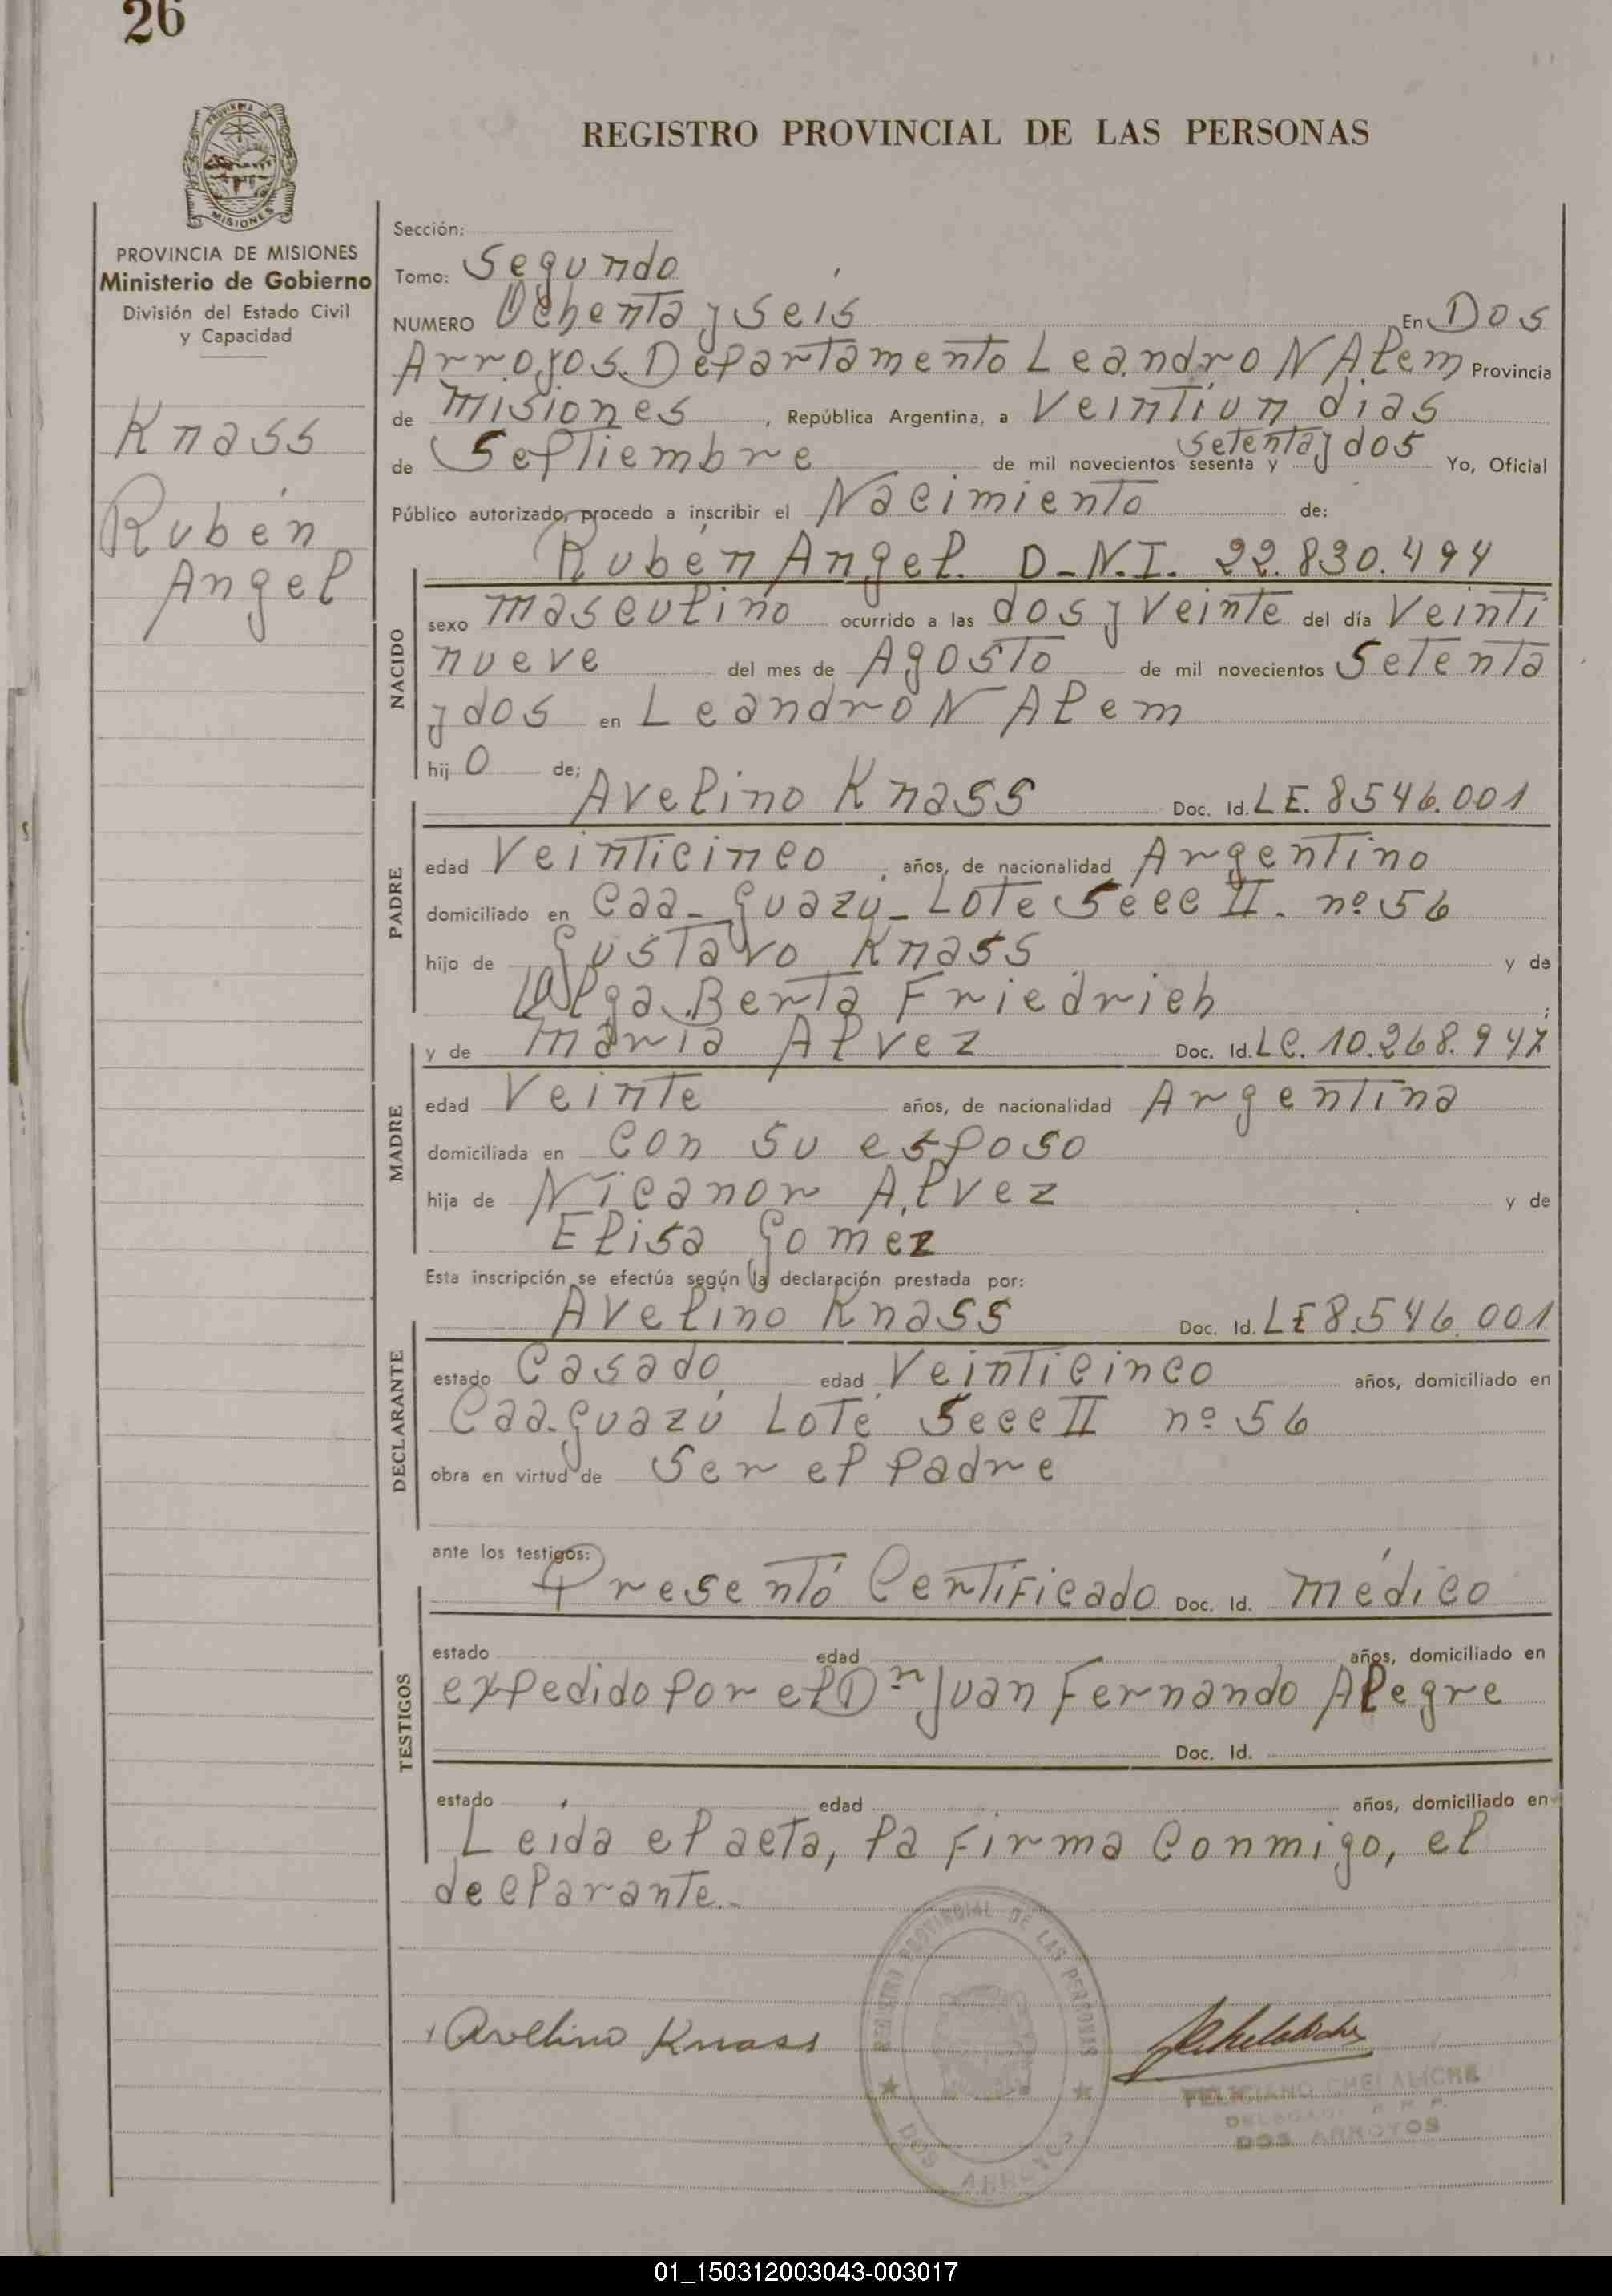 26
REGISTRO PROVINCIAL DE LAS PERSONAS
PROVINCIA DE MISIONES
PROVINCIA DE MISIONES
Ministerio de Gobierno
División del Estado Civil
y Capacidad
Knass
Rubén
Angel
Sección:
Tomo: Segundo
NUMERO Ochenta y seis En Dos
Arroyos. Departamento Leandro N Alem Provincia
de Misiones , República Argentina, a Veintiun dias
de Septiembre de mil novecientos sesenta y setenta y dos Yo, Oficial
Público autorizado, procedo a inscribir el Nacimiento de:
Rubén Angel. D.N.I. 22.830.494
NACIDO
sexo masculino ocurrido a las dos y veinte del día Veinti
nueve del mes de Agosto de mil novecientos Setenta
y dos en Leandro N Alem
hij o de;
Avelino Knass Doc. Id. LE. 8546.001
PADRE
edad Veinticinco años, de nacionalidad Argentino
domiciliado en Caa-Guazú-Lote Secc II. nº 56
hijo de Gustavo Knass y de
Olga Berta Friedrich ;
y de Maria Alvez Doc. Id. LC. 10.268.947
MADRE
edad Veinte años, de nacionalidad Argentina
domiciliada en con su esposo
hija de Nicanor Alvez y de
Elisa Gomez
Esta inscripción se efectúa según la declaración prestada por:
Avelino Knass Doc. Id. LE 8.546.001
DECLARANTE
estado Casado edad Veinticinco años, domiciliado en
Caa-Guazú Lote Secc II nº 56
obra en virtud de Ser el padre
ante los testigos:
Presentó Certificado Doc. Id. médico
TESTIGOS
estado edad años, domiciliado en
expedido por el Dr Juan Fernando Alegre
Doc. Id.
estado edad años, domiciliado en
Leida el acta, la firma conmigo, el
declarante.
Avelino Knass
REGISTRO PROVINCIAL DE LAS PERSONAS
DOS ARROYOS
FELICIANO CHELALICHE
DELEGADO R. P. P.
DOS ARROYOS
01_150312003043-003017